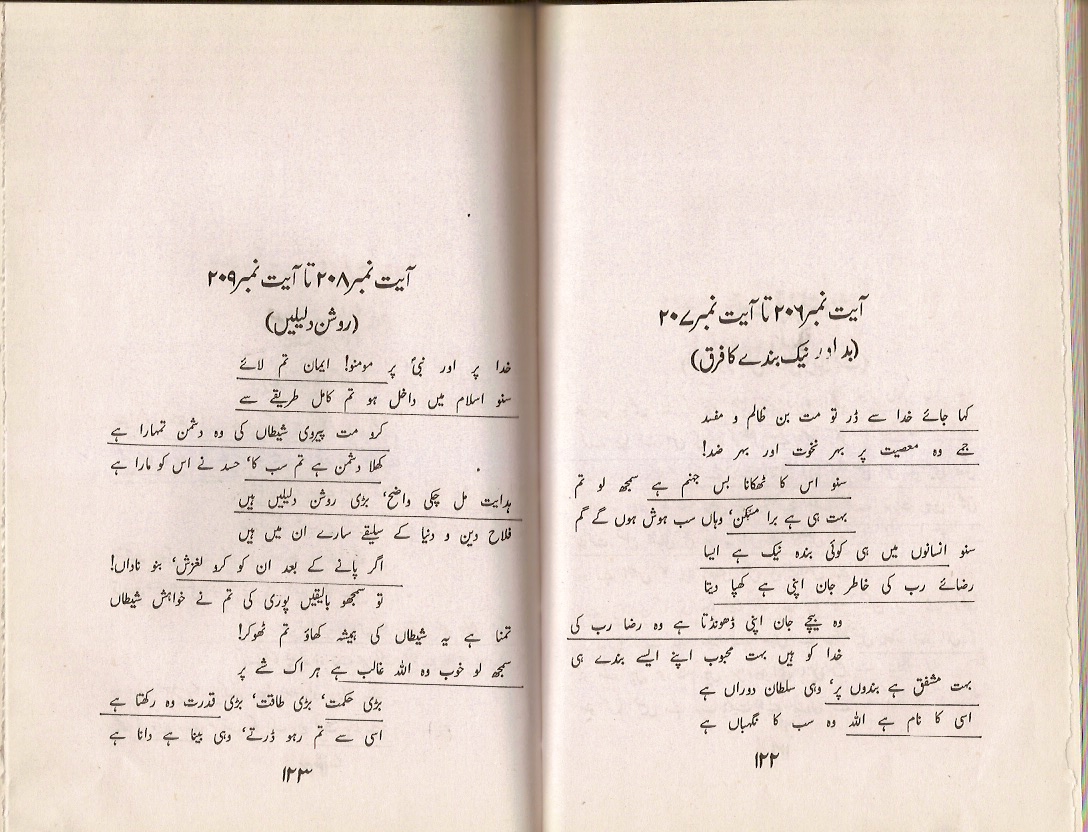 آیت نمبر ۲۰۶ تا آیت نمبر ۲۰۷
(بد اور نیک بندے کا فرق)
کہا جائے خدا سے ڈر تو مت بن ظالم و مفسد
جمے وہ معصیت پر بہر نخوت اور بہر ضد!
سنو اس کا ٹھکانا بس جہنم ہے سمجھ لو تم
بہت ہی ہے برا مسکن، وہاں سب ہوش ہوں گے گم
سنو انسانوں میں ہی کوئی بندہ نیک ہے ایسا
رضائے رب کی خاطر جان اپنی ہے کھپا دیتا
وہ بیچے جان اپنی ڈھونڈتا ہے وہ رضا رب کی
خدا کو ہیں بہت محبوب اپنے ایسے بندے ہی
بہت مشفق ہے بندوں پر، وہی سلطان دوراں ہے
اسی کا نام ہے اللہ وہ سب کا نگہباں ہے
۱۲۲
آیت نمبر ۲۰۸ تا آیت نمبر ۲۰۹
(روشن دلیلیں)
خدا پر اور نبیؐ پر مومنو! ایمان تم لائے
سنو اسلام میں داخل ہو تم کامل طریقے سے
کرو مت پیروی شیطاں کی وہ دشمن تمہارا ہے
کھلا دشمن ہے تم سب کا، حسد نے اس کو مارا ہے
ہدایت مل چکی واضح، بڑی روشن دلیلیں ہیں
فلاح دین و دنیا کے سلیقے سارے ان میں ہیں
اگر پانے کے بعد ان کو کرو لغزش، بنو ناداں!
تو سمجھو بالیقیں پوری کی تم نے خواہش شیطاں
تمنا ہے یہ شیطاں کی ہمیشہ کھاؤ تم ٹھوکر!
سمجھ لو خوب وہ اللہ غالب ہے ہر اک شے پر
بڑی حکمت، بڑی طاقت، بڑی قدرت وہ رکھتا ہے
اسی سے تم رہو ڈرتے، وہی بینا ہے دانا ہے
۱۲۳